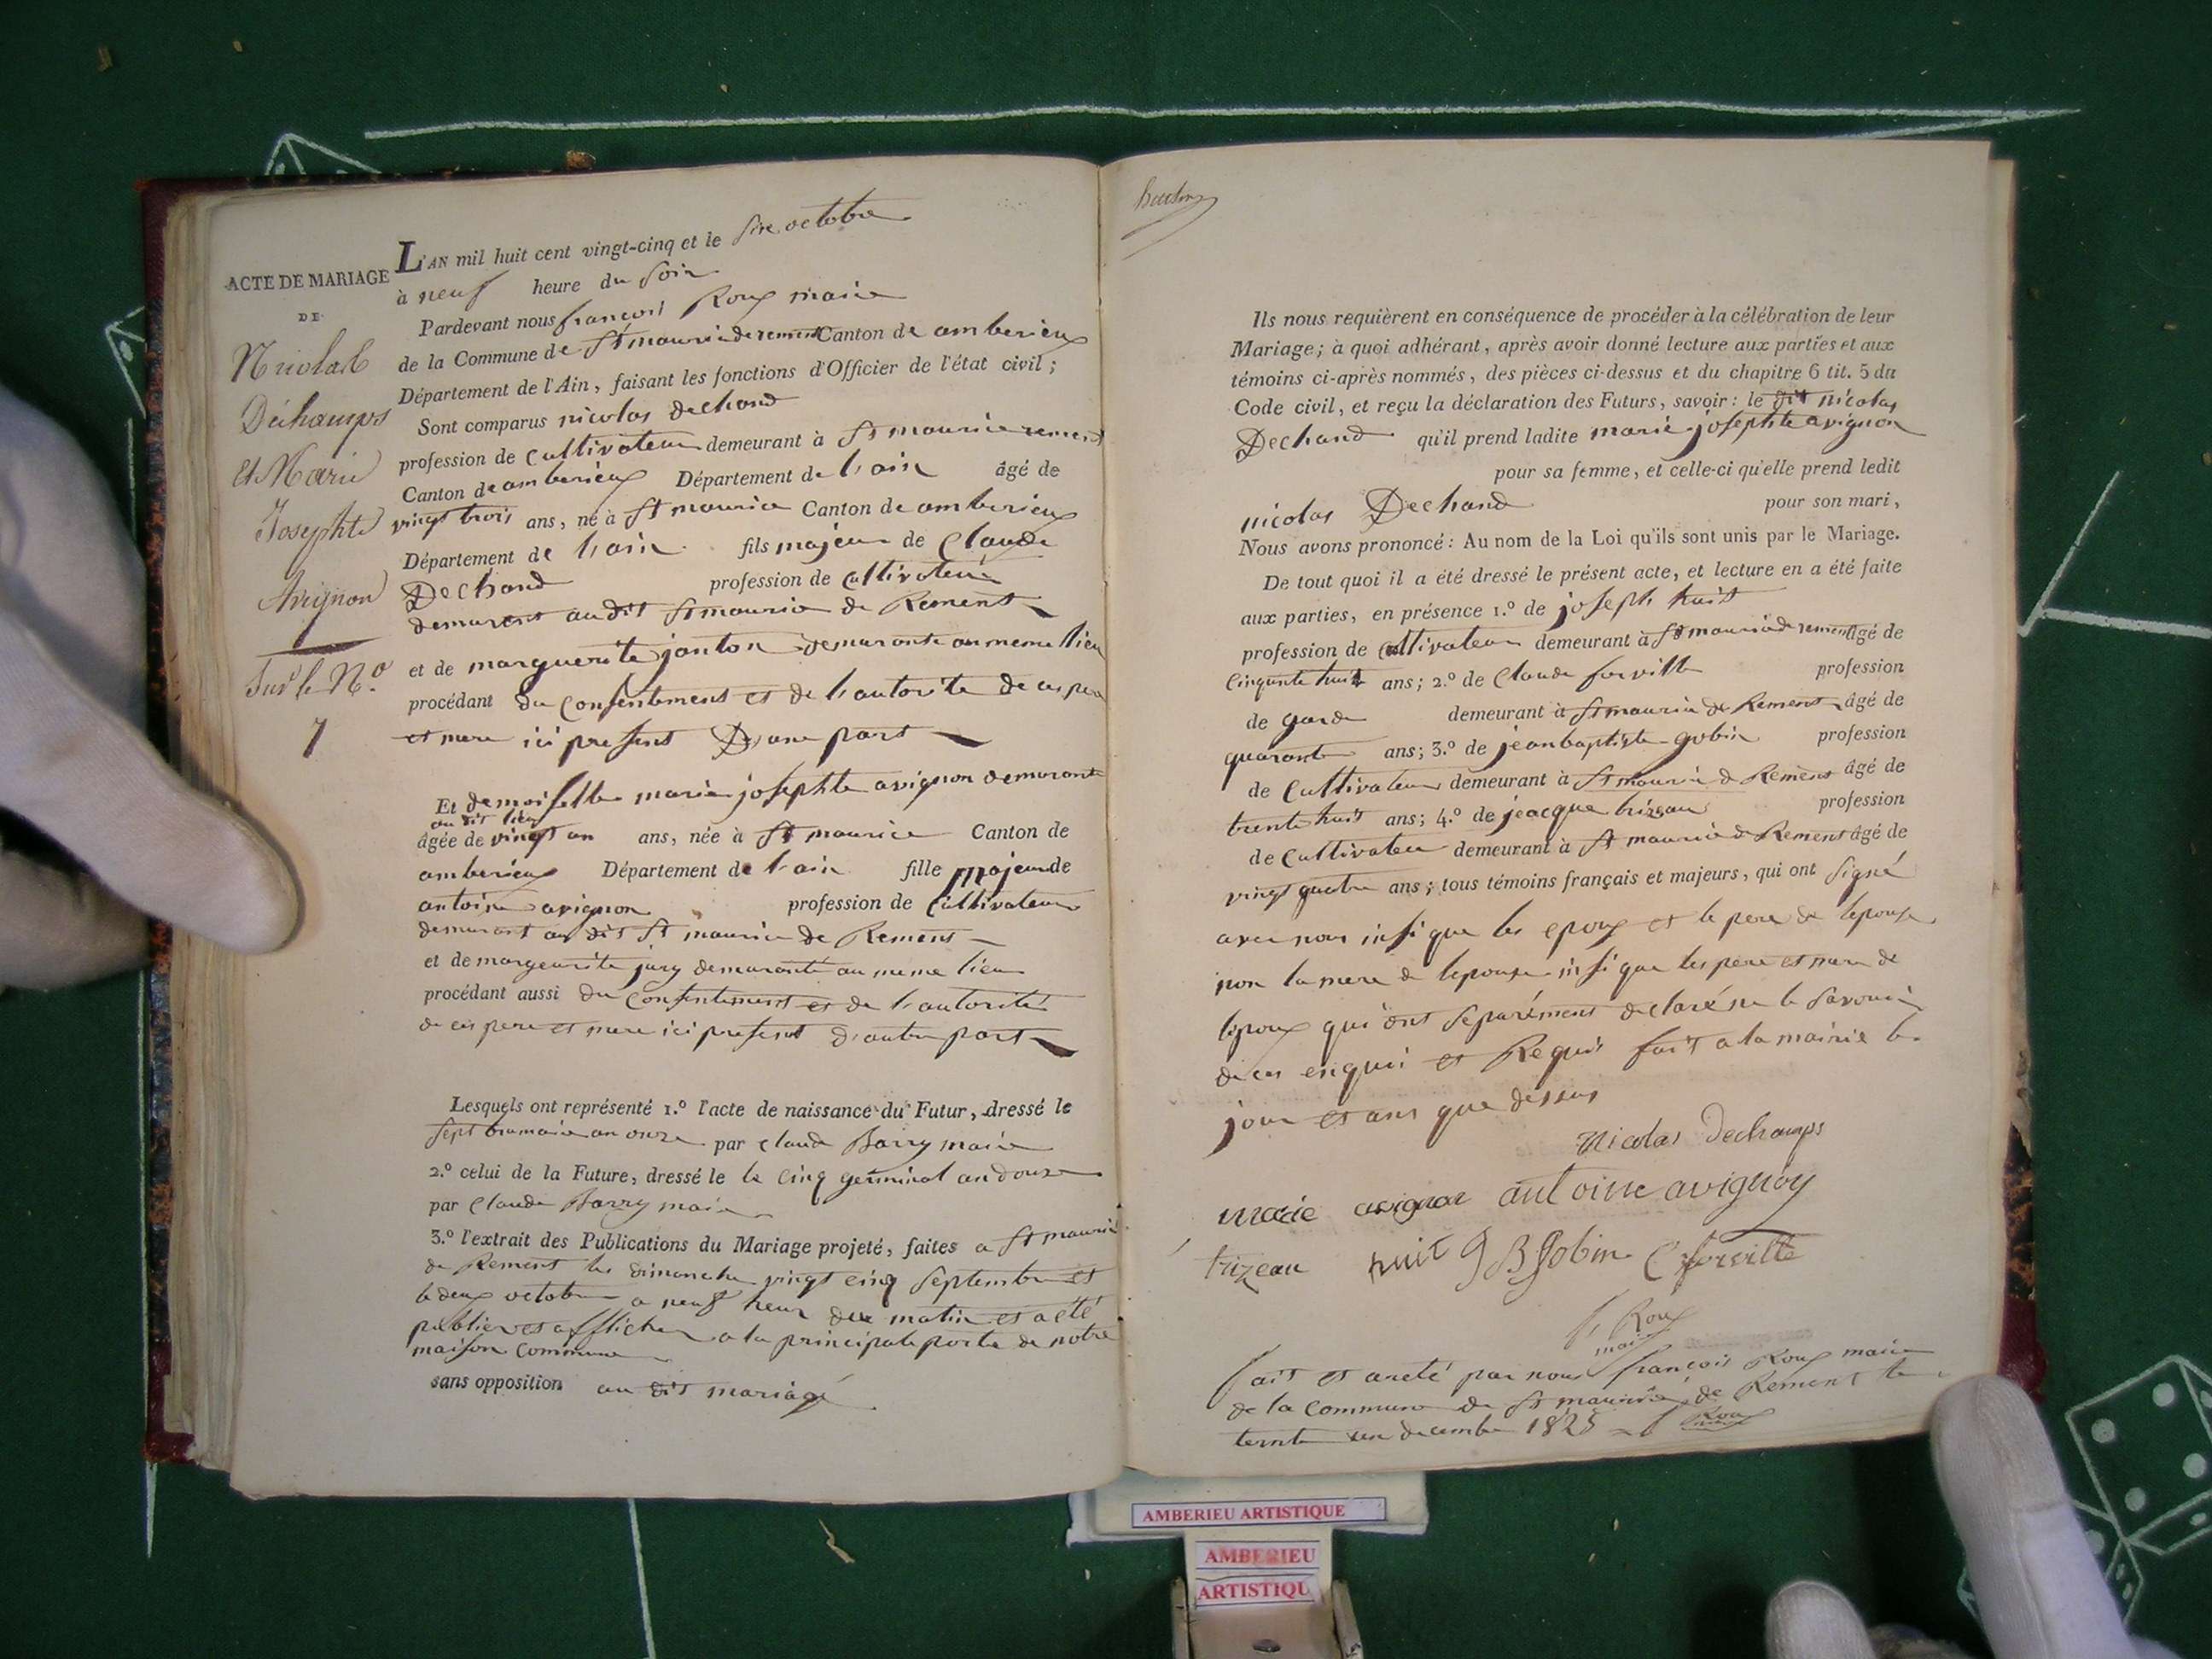 ACTE DE MARIAGE
DE
Nicolas
Déchamps
Et Marie
Josephte
Avignon
Sur le N.º
7
L'AN mil huit cent vingt-cinq et le size octobre
à neuf heure du soir
Pardevant nous françois Roux maire
de la Commune de St maurice de remens Canton de amberieux
Département de l'Ain, faisant les fonctions d'Officier de l'état civil;
Sont comparus nicolas dechand
profession de cultivateur demeurant à St maurice remens
Canton de amberieux Département de l'ain âgé de
vingt trois ans, né à St maurice Canton de amberieux
Département de l'ain fils majeur de Claude
Dechand profession de cultivateur
demurant audit St maurice de Remens
et de marguerite janton demurante au meme lieu
procédant du Consentement et de l'autorite de ces pere
et mere ici present D'une part
Et demoiselle marie josephte avignon demurante
au dit lieu
âgée de vingt un ans, née à St maurice Canton de
amberieux Département de l'ain fille majeur de
antoine avignon profession de Cultivateur
demurant au dit St maurice de Remens
et de margeurite jury demurante au meme lieu
procédant aussi du Consentement et de l'autorité
de ces pere et mere ici present d'autre part
Lesquels ont représenté 1.º l'acte de naissance du Futur, dressé le
sept brumaire an onze par claude Barry maire
2.º celui de la Future, dressé le le cinq germinal an douze
par Claude Barry maire
3.º l'extrait des Publications du Mariage projeté, faites a St maurice
de Remens les dimanche vingt cinq septembre et
le deux octobre a neuf heur du matin et a été
publier et afflicher a la principale porte de notre
maison Commune
sans opposition au dit mariage
Ils nous requièrent en conséquence de procéder à la célébration de leur
Mariage; à quoi adhérant, après avoir donné lecture aux parties et aux
témoins ci-après nommés, des pièces ci-dessus et du chapitre 6 tit. 5 du
Code civil, et reçu la déclaration des Futurs, savoir: le dit nicolas
Dechand qu'il prend ladite marie josephte avignon
pour sa femme, et celle-ci qu'elle prend ledit
nicolas Dechand pour son mari,
Nous avons prononcé: Au nom de la Loi qu'ils sont unis par le Mariage.
De tout quoi il a été dressé le présent acte, et lecture en a été faite
aux parties, en présence 1.º de joseph huit
profession de cultivateur demeurant à St maurice de remens âgé de
cinqunte huit ans; 2.º de Claude forville profession
de garde demeurant à St maurice de Remens âgé de
quarante ans; 3.º de jeanbaptiste gobin profession
de Cultivateur demeurant à St maurice de Remens âgé de
trente huit ans; 4.º de jeacque trizeau profession
de Cultivateur demeurant à St maurice de Remens âgé de
vingt quatre ans; tous témoins français et majeurs, qui ont signé
avec nous insi que les epoux et le pere de lepouse
non la mere de lepouse insi que les pere et mere de
lepoux qui ont séparément déclaré ne le savoir
de ces enquis et Requis fait a la mairie le
jour et ans que dessus
Nicolas Dechamps
marie avignon antoine avignon
trizeau huit J B Gobin C forville
f. Roux
maire
fait et areté par nous françois Roux maire
de la Commune de St maurice de Remens le
trente un decembre 1825 f Roux
AMBERIEU ARTISTIQUE
AMBERIEU
ARTISTIQU